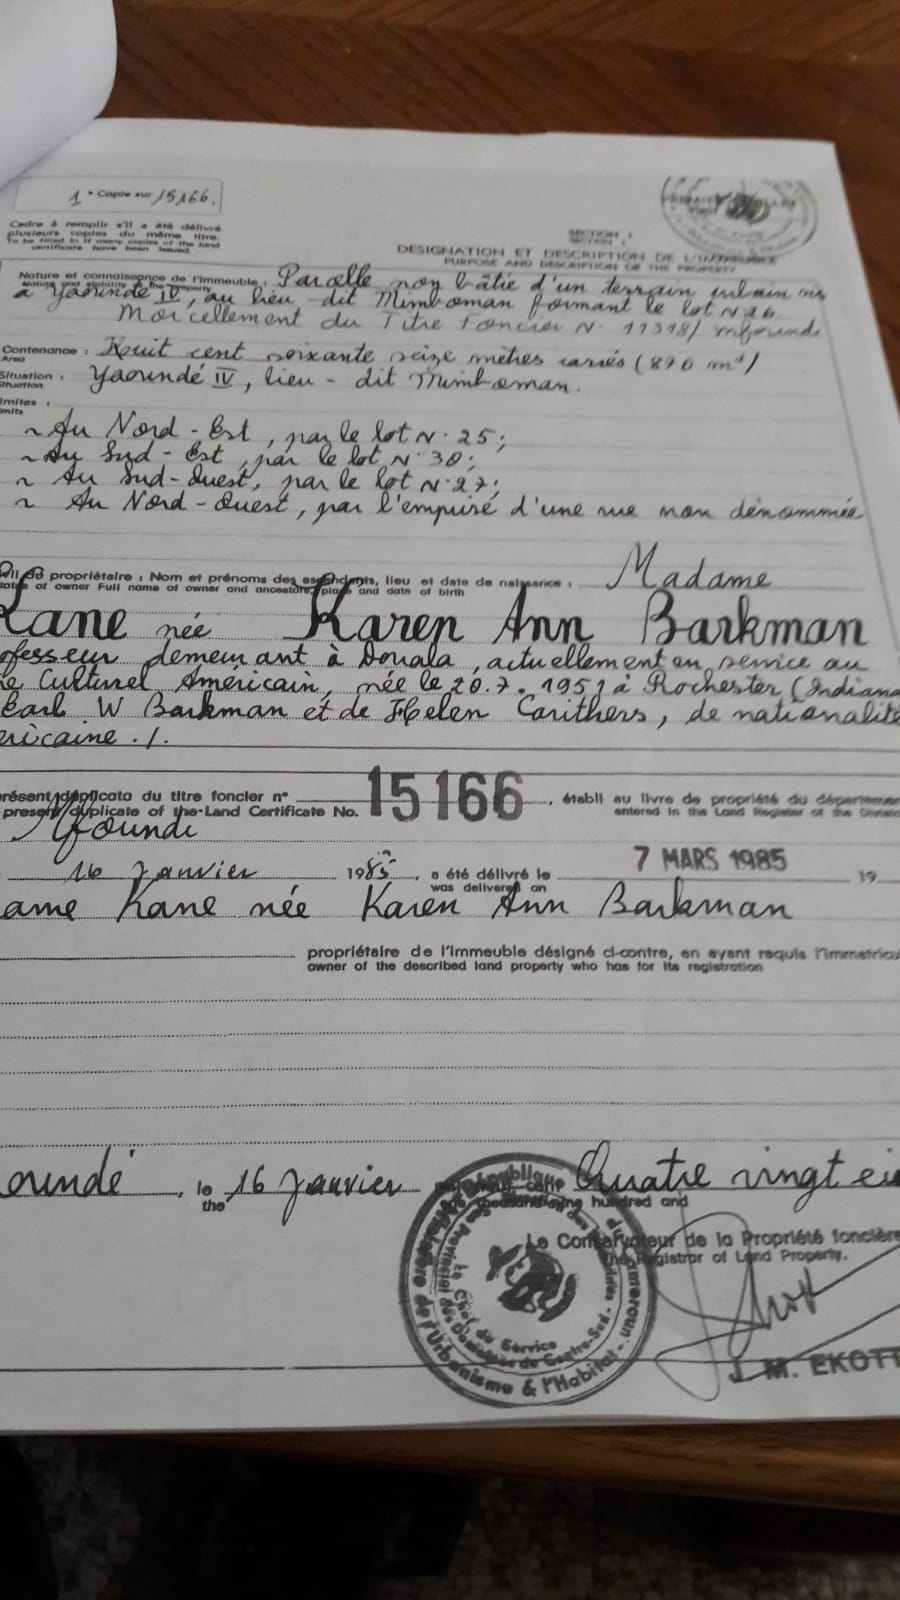 1e Copie sur 15166.
Cadre à remplir s'il a été délivré
plusieurs copies du même titre.
To be filled in if many copies of the land
certificate have been issued.
SECTION I
SECTION I
DESIGNATION ET DESCRIPTION DE L'IMMEUBLE
PURPOSE AND DESCRIPTION OF THE PROPERTY
Nature et connaissance de l'immeuble : Parcelle non bâtie d'un terrain urbain sis
à Yaoundé IV, au lieu-dit Mimboman formant le lot N° 26
Morcellement du Titre Foncier N° 11318/Mfoundi
Contenance : Huit cent soixante seize mètres carrés (876 m²)
Area
Situation : Yaoundé IV, lieu-dit Mimboman.
Situation
imites :
mits
~ Au Nord-Est, par le lot N° 25;
~ Au Sud-Est, par le lot N° 30;
~ Au Sud-Ouest, par le lot N° 27;
~ Au Nord-Ouest, par l'emprise d'une rue non dénommée
du propriétaire : Nom et prénoms des ascendants, lieu et date de naissance : Madame
of owner Full name of owner and ancestors, place and date of birth
Kane née Karen Ann Barkman
ofesseur demeurant à Douala, actuellement en service au
e Culturel Américain, née le 20.7.1951 à Rochester (Indiana
Earl W Barkman et de Helen Carithers, de nationalité
éricaine ./.
présent duplicata du titre foncier n° 15166, établi au livre de propriété du départemen
present duplicate of the Land Certificate No. entered in the Land Register of the Division
Mfoundi
16 Janvier 1985, a été délivré le 7 MARS 1985 19
was delivered on
ame Kane née Karen Ann Barkman
propriétaire de l'immeuble désigné ci-contre, en ayant requis l'immatricul
owner of the described land property who has for its registration
oundé, le 16 Janvier Quatre vingt
the hundred and
Le Conservateur de la Propriété foncière
The Registrar of Land Property.
Le Chef de Service
Provincial des Domaines du Centre-Sud
de l'Urbanisme & l'Habitat
J. M. EKOTT